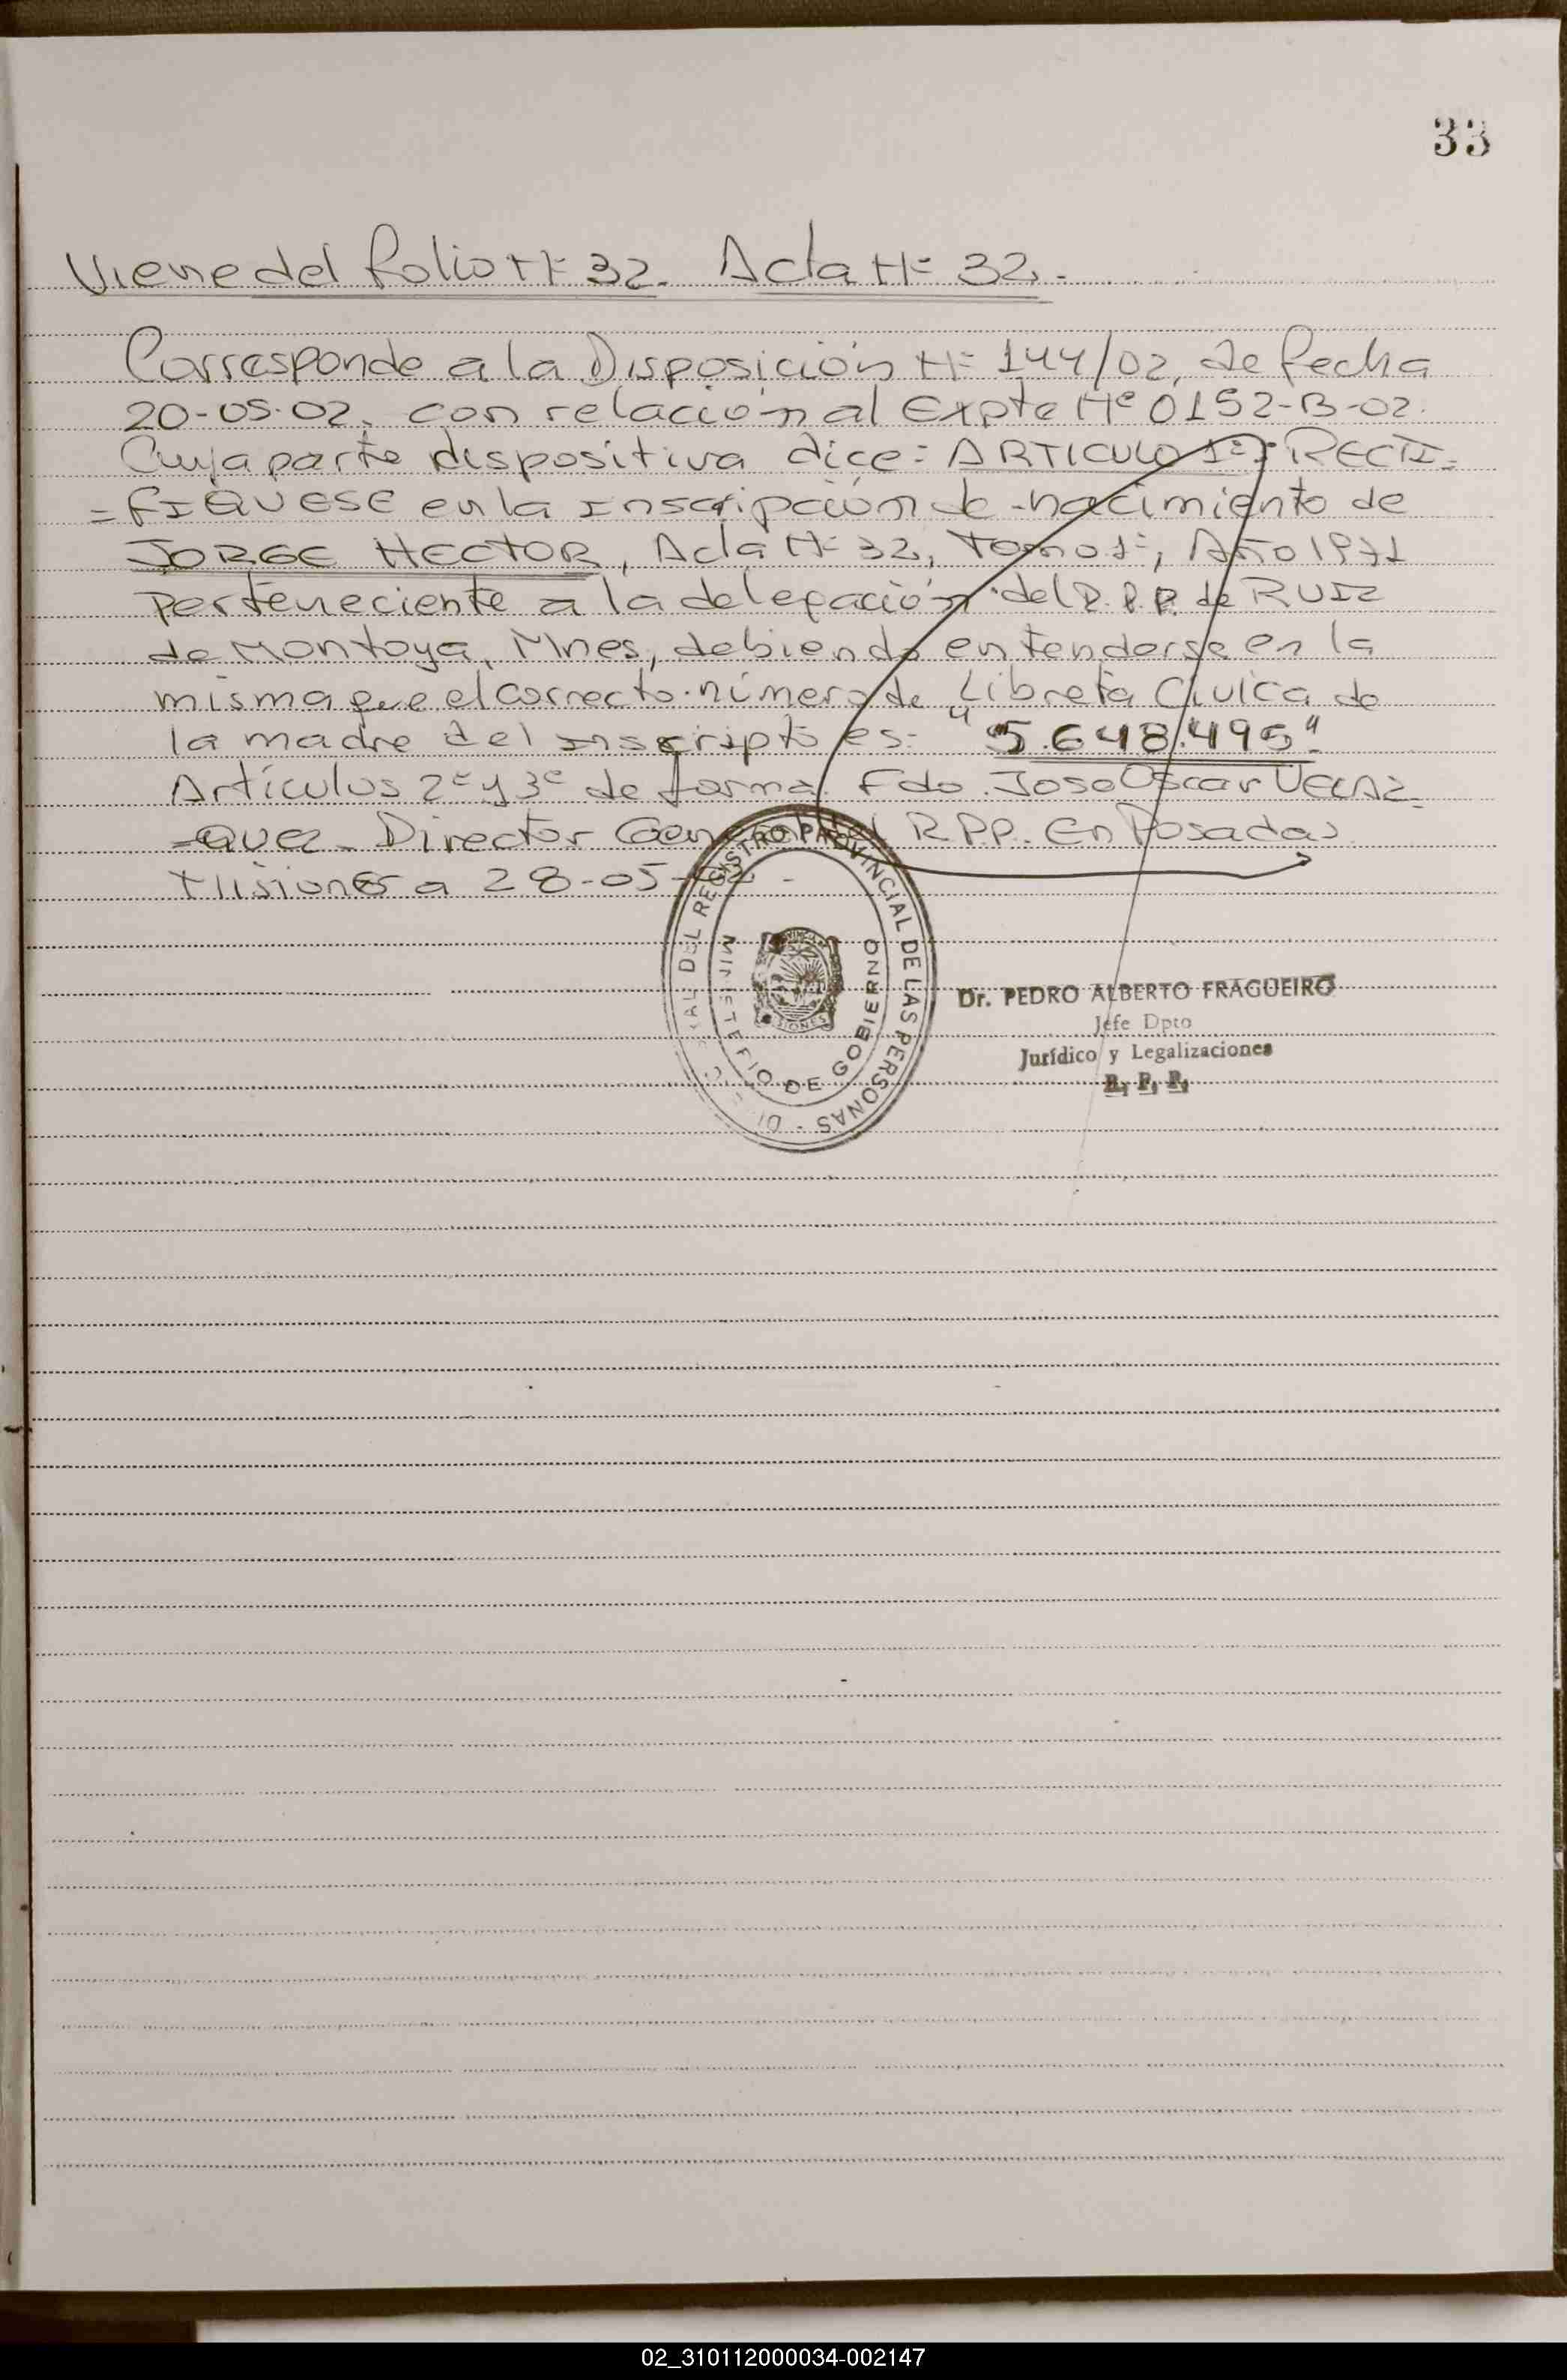 33
Viene del folio Nº 32. Acta Nº 32.-
Corresponde a la Disposición Nº 144/02, de fecha
20-05-02, con relación al Expte Nº 0152-B-02.
Cuya parte dispositiva dice: ARTICULO 1º): RECTI=
=FIQUESE en la Inscripción de nacimiento de
JORGE HECTOR, Acta Nº 32, Tomo 1º, Año 1971
Perteneciente a la delegación del R.P.P. de RUIZ
de Montoya, Mnes, debiendo entenderse en la
misma que el correcto número de Libreta Cívica de
la madre del Inscripto es: "5.648.495".
Artículos 2º y 3º de forma. Fdo. Jose Oscar VELAZ=
=QUEZ. Director General del R.P.P. En Posadas
Misiones a 28-05-02 -
REGISTRO PROVINCIAL DE LAS PERSONAS -
MINISTERIO DE GOBIERNO
Dr. PEDRO ALBERTO FRAGUEIRO
Jefe Dpto
Jurídico y Legalizaciones
R. P. P.
02_310112000034-002147